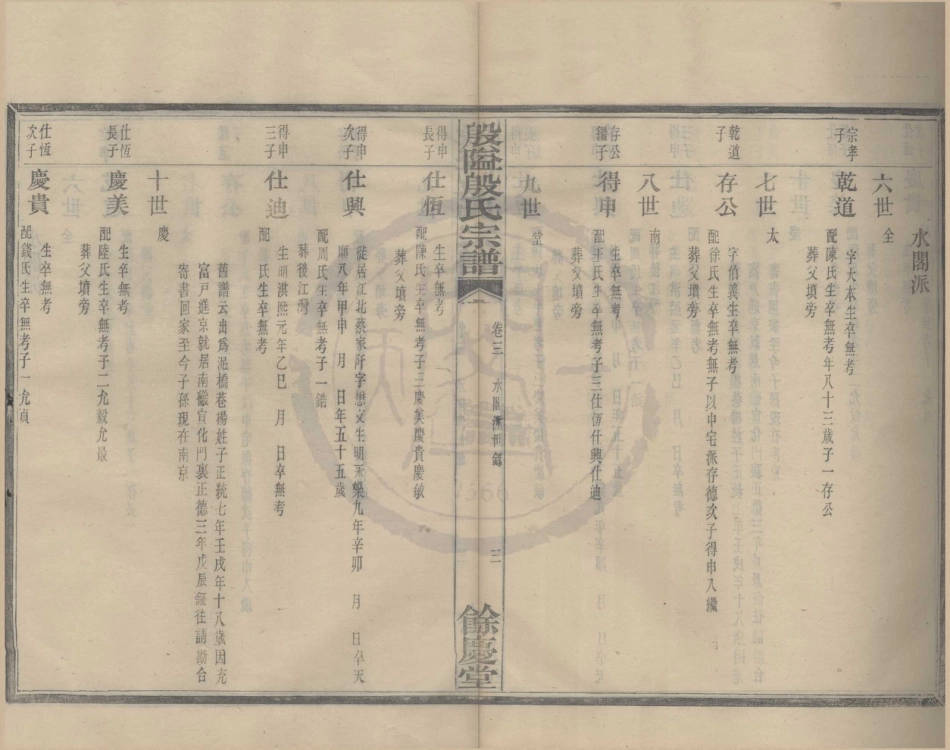 水閣派
六世 全
宗孝子 乾道 字大本生卒無考
配陳氏生卒無考年八十三歲子一存公
葬父墳旁
七世 太
乾道子 存公 字尙義生卒無考
配徐氏生卒無考無子以中宅派存德次子得申入繼
葬父墳旁
八世 南
存公繼子 得申 生卒無考
配 氏生卒無考子三仕恆仕興仕迪
葬父墳旁
九世 堂
得申長子 仕恆 生卒無考
配陳氏生卒無考子三慶美慶貴慶敏
葬父墳旁
得申次子 仕興 徙居江北蔡家阡字懋文生明永樂九年辛卯 月 日卒天
順八年甲申 月 日年五十五歲
配周氏生卒無考子一
葬後江灣
得申三子 仕迪 生明洪熙元年乙巳 月 日卒無考
配 氏生卒無考
舊譜云出爲泥橋巷楊姓子正統七年壬戌年十八歲因充
富戶進京就居南 宣化門裏正德三年戊辰 往請勘合
寄書回家至今子孫現在南京
十世 慶
仕恆長子 慶美 生卒無考
配陸氏生卒無考子二允毅允最
葬父墳旁
仕恆次子 慶貴 生卒無考
配錢氏生卒無考子一允貞
殷隘殷氏宗譜
卷三 水閣派世錄
三
餘慶堂